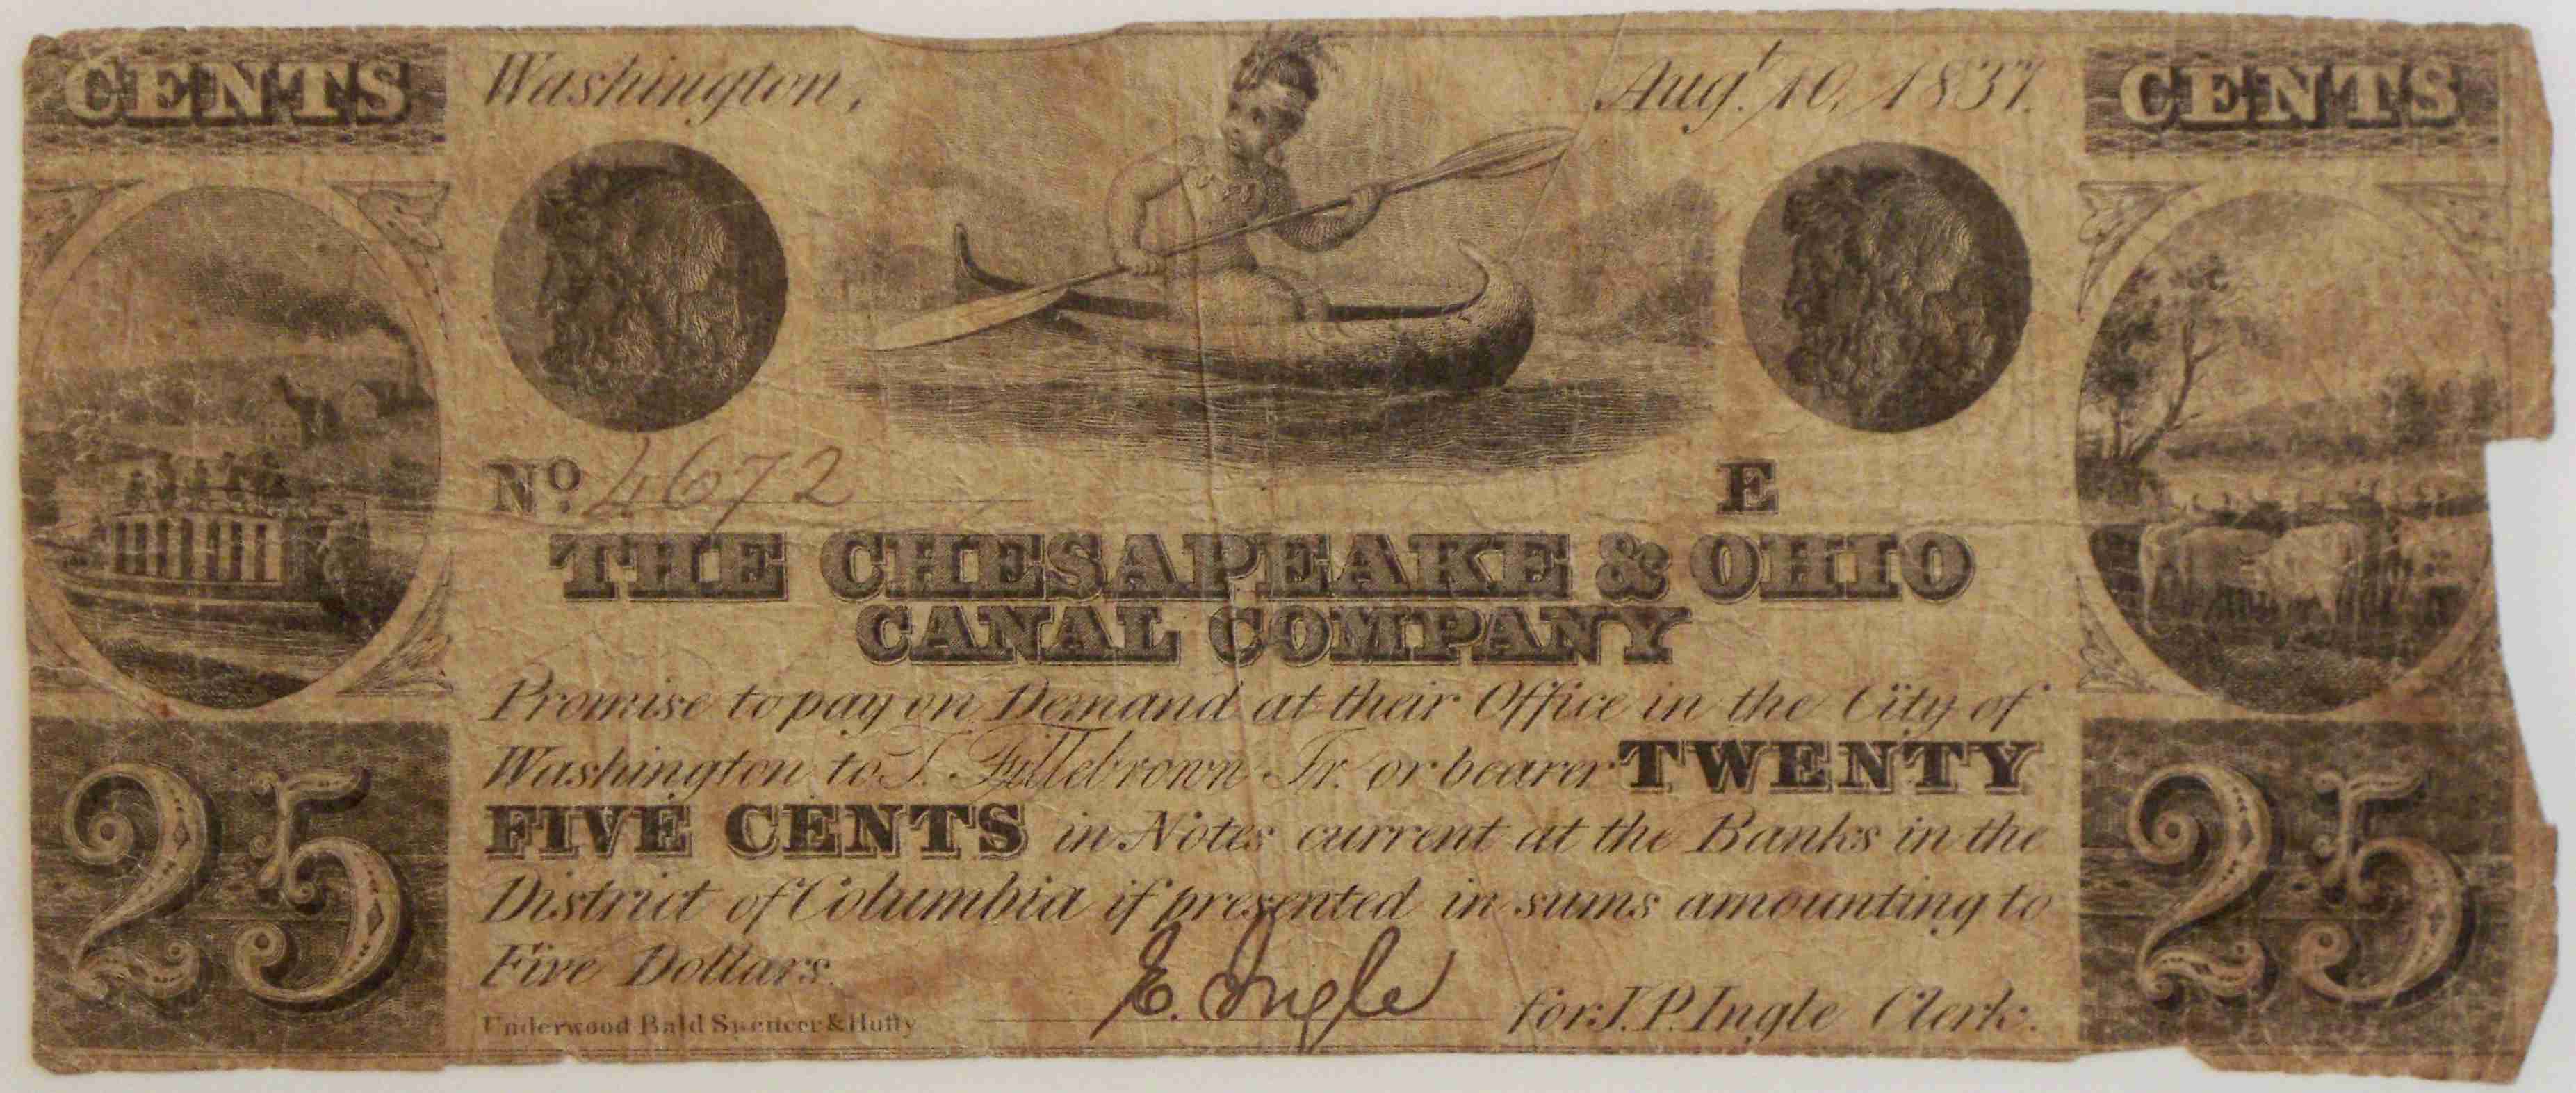 CENTS Washington, Augt. 10, 1837. CENTS
No. 4672 E
THE CHESAPEAKE & OHIO
CANAL COMPANY
Promise to pay on Demand at their Office in the City of
Washington to T. Fillebrown Jr. or bearer TWENTY
FIVE CENTS in Notes current at the Banks in the
District of Columbia if presented in sums amounting to
Five Dollars.
25 25
E. Ingle for J. P. Ingle Clerk.
Underwood Bald Spencer & Hufty